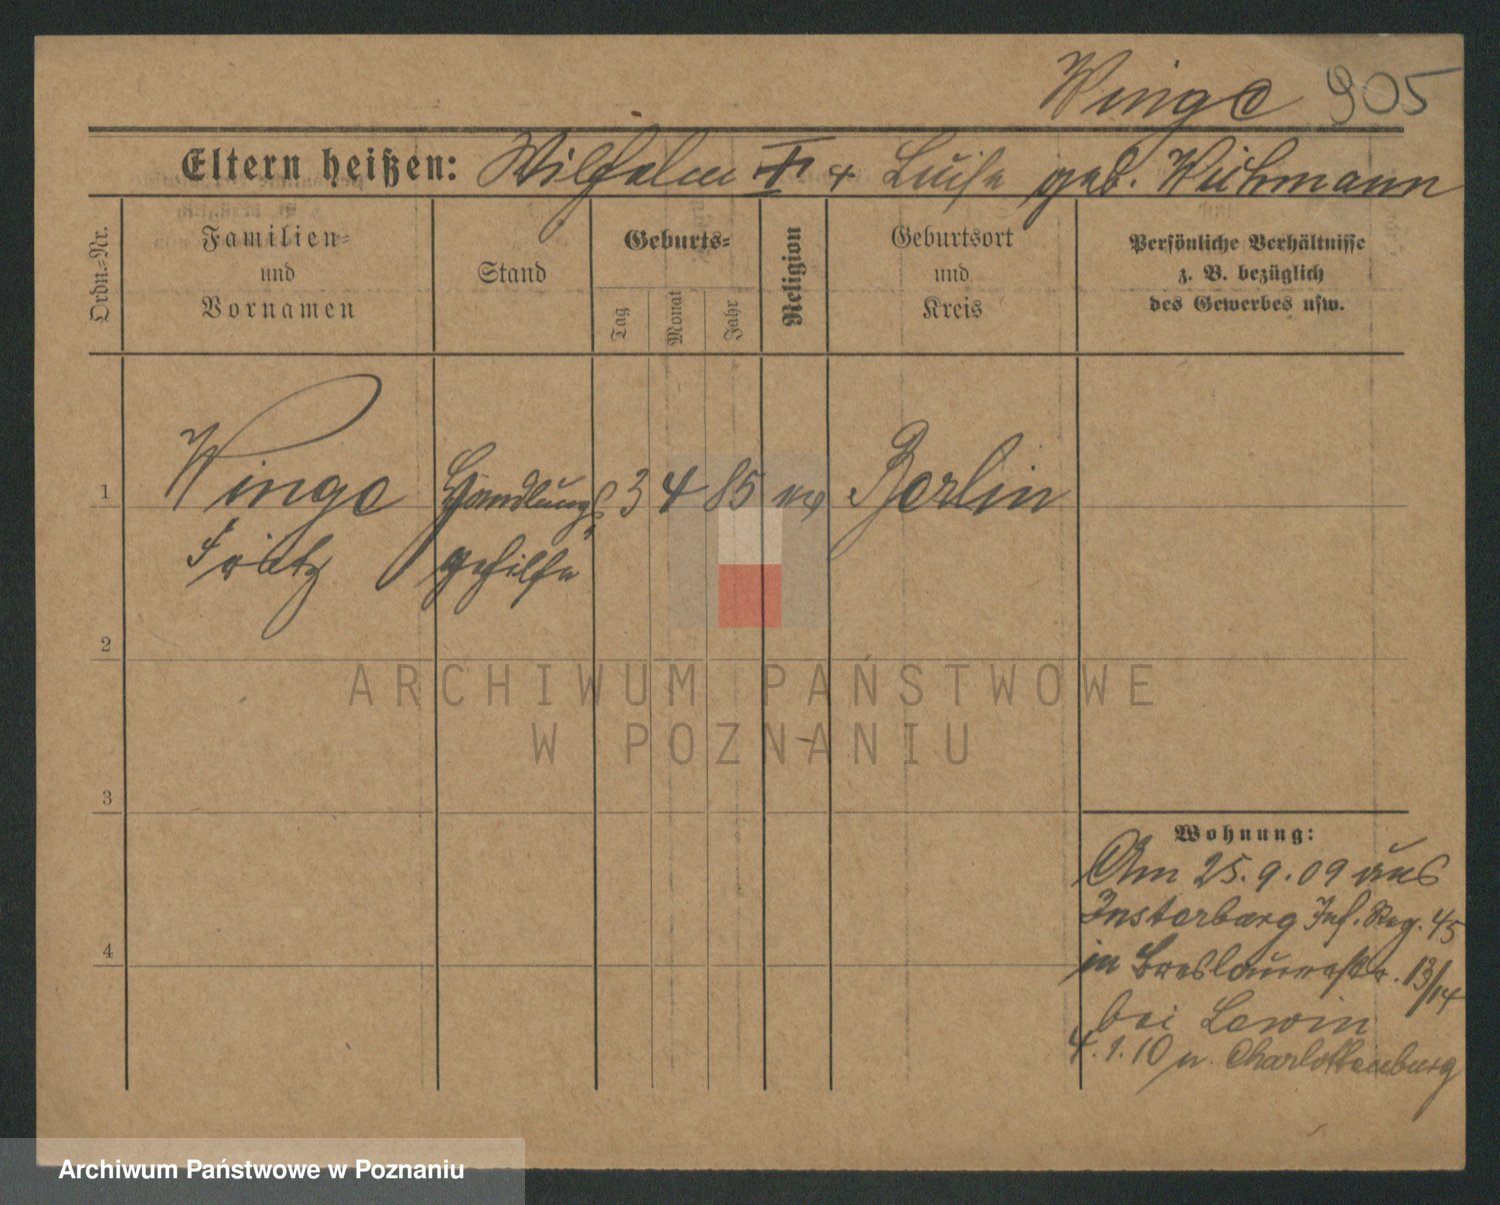 Winge 905
Eltern heißen: Wilhelm † + Luise geb. Wichmann
Ordn.-Nr.
Familien-
und
Vornamen
Stand
Geburts-
Tag
Monat
Jahr
Religion
Geburtsort
und
Kreis
Persönliche Verhältnisse
z. B. bezüglich
des Gewerbes usw.
1 Winge Handlungs 3 4 85 ev Berlin
Fritz gehilfe
2
3
4
Wohnung:
Am 25.9.09 aus
Insterburg Inf. Reg. 45
in Breslauerstr. 13/14
bei Lewin
4.1.10 n. Charlottenburg
ARCHIWUM PAŃSTWOWE
W POZNANIU
Archiwum Państwowe w Poznaniu